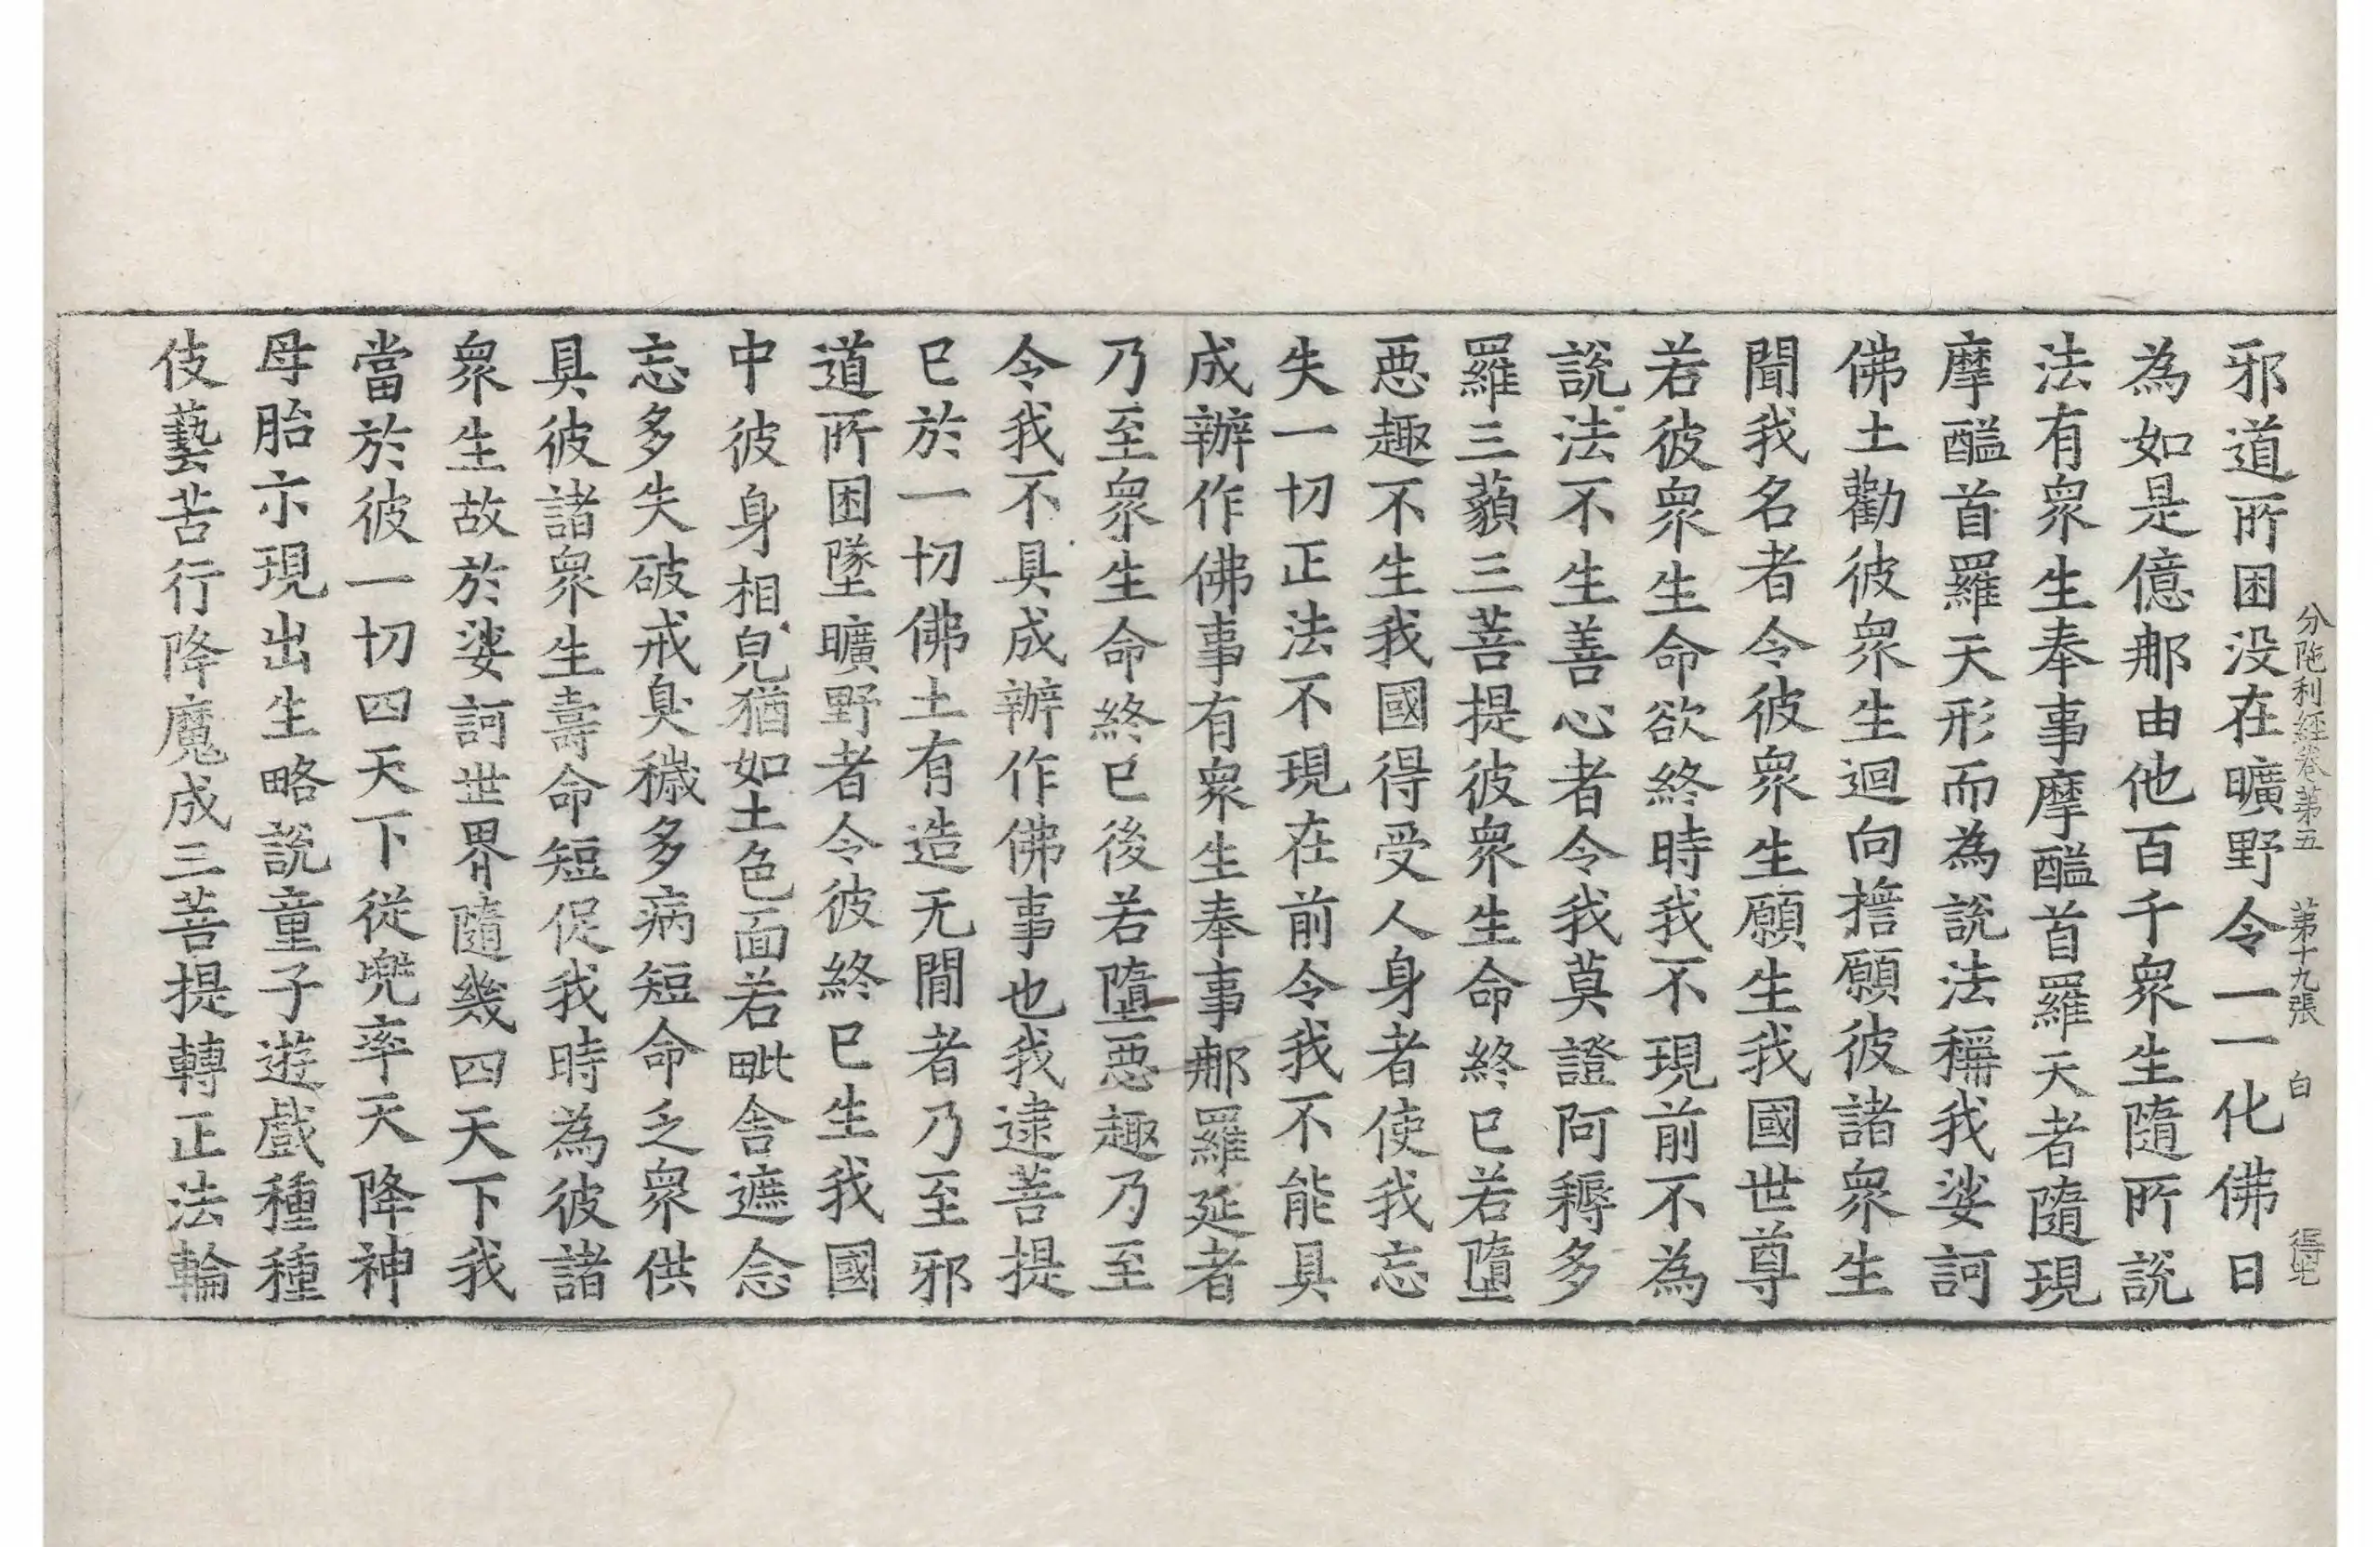 分陁利經卷第五 第十九張 白 得
邪道所困没在曠野令一一化佛日
為如是億那由他百千衆生隨所說
法有衆生奉事摩醯首羅天者隨現
摩醯首羅天形而為說法稱我娑訶
佛土勸彼衆生迴向擔願彼諸衆生
聞我名者令彼衆生願生我國世尊
若彼衆生命欲終時我不現前不為
說法不生善心者令我莫證阿耨多
羅三藐三菩提彼衆生命終已若墮
惡趣不生我國得受人身者使我忘
失一切正法不現在前令我不能具
成辦作佛事有衆生奉事那羅延者
乃至衆生命終已後若墮惡趣乃至
令我不具成辦作佛事也我逮菩提
已於一切佛土有造无閒者乃至邪
道所困墜曠野者令彼終已生我國
中彼身相皃猶如土色面若毗舍遮念
忘多失破戒臭穢多病短命乏衆供
具彼諸衆生壽命短促我時為彼諸
衆生故於娑訶世界隨幾四天下我
當於彼一切四天下從兜率天降神
母胎示現出生略說童子遊戲種種
伎藝苦行降魔成三菩提轉正法輪